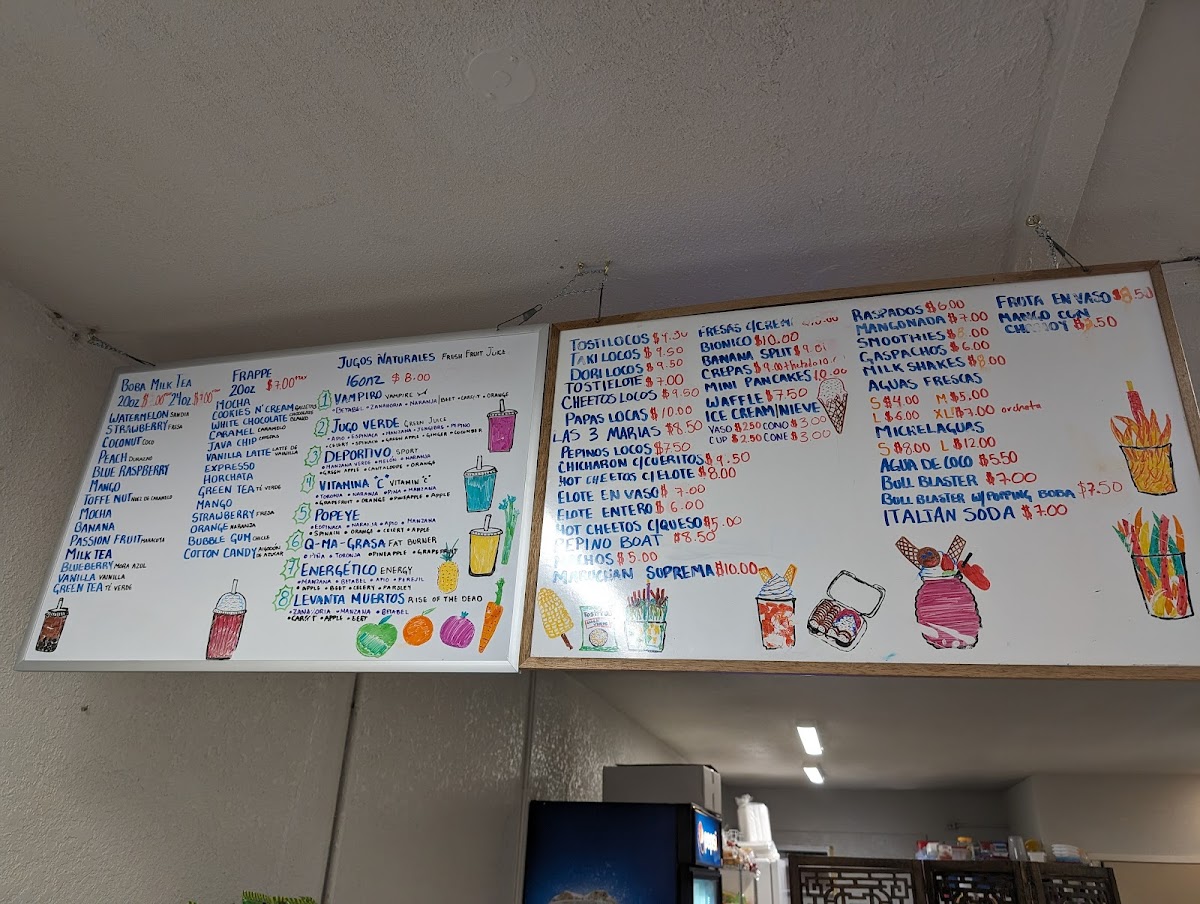 BOBA MILK TEA
20oz 24oz $7.00
WATERMELON SANDIA
STRAWBERRY FRESA
COCONUT COCO
PEACH DURAZNO
BLUE RASPBERRY
MANGO
TOFFE NUT NUEZ DE CARAMELO
MOCHA
BANANA
PASSION FRUIT MARACUYA
MILK TEA
BLUEBERRY MORA AZUL
VANILLA VAINILLA
GREEN TEA TÉ VERDE
FRAPPE
20oz $7.00
MOCHA
COOKIES N' CREAM GALLETAS
WHITE CHOCOLATE CHOCOLATE BLANCO
CARAMEL CARAMELO
JAVA CHIP CHISPAS
VANILLA LATTE LATTE DE VAINILLA
EXPRESSO
HORCHATA
GREEN TEA TÉ VERDE
MANGO
STRAWBERRY FRESA
ORANGE NARANJA
BUBBLE GUM CHICLE
COTTON CANDY ALGODÓN DE AZUCAR
JUGOS NATURALES FRESH FRUIT JUICE
16onz $8.00
1 VAMPIRO VAMPIRE
• BETABEL • ZANAHORIA • NARANJA | BEET • CARROT • ORANGE
2 JUGO VERDE GREEN JUICE
• APIO • ESPINACA • MANZANA • JENGIBRE • PEPINO
• CELERY • SPINACH • GREEN APPLE • GINGER • CUCUMBER
3 DEPORTIVO SPORT
• MANZANA VERDE • MELÓN • NARANJA
• GREEN APPLE • CANTALOUPE • ORANGE
4 VITAMINA "C" VITAMIN "C"
• TORONJA • NARANJA • PIÑA • MANZANA
• GRAPEFRUIT • ORANGE • PINEAPPLE • APPLE
5 POPEYE
• ESPINACA • NARANJA • APIO • MANZANA
• SPINACH • ORANGE • CELERY • APPLE
6 Q-MA-GRASA FAT BURNER
• PIÑA • TORONJA • PINEAPPLE • GRAPEFRUIT
7 ENERGÉTICO ENERGY
• MANZANA • BETABEL • APIO • PEREJIL
• APPLE • BEET • CELERY • PARSLEY
8 LEVANTA MUERTOS RISE OF THE DEAD
• ZANAHORIA • MANZANA • BETABEL
• CARROT • APPLE • BEET
TOSTILOCOS $9.50
TAKILOCOS $9.50
DORILOCOS $9.50
TOSTIELOTE $7.00
CHEETOS LOCOS $9.50
PAPAS LOCAS $10.00
LAS 3 MARIAS $8.50
PEPINOS LOCOS $7.50
CHICHARON C/CUERITOS $9.50
HOT CHEETOS C/ELOTE $8.00
ELOTE EN VASO $7.00
ELOTE ENTERO $6.00
HOT CHEETOS C/QUESO $5.00
PEPINO BOAT $8.50
NACHOS $5.00
MARUCHAN SUPREMA $10.00
FRESAS C/CREMA
BIONICO $10.00
BANANA SPLIT
CREPAS $9.00
MINI PANCAKES
WAFFLE $7.50
ICE CREAM/NIEVE
VASO $2.50 CONO $3.00
CUP $2.50 CONE $3.00
RASPADOS $6.00
MANGONADA $7.00
SMOOTHIES
GASPACHOS $6.00
MILK SHAKES
AGUAS FRESCAS
S $4.00 M $5.00
L $6.00 XL $7.00
MICHELAGUAS
S $8.00 L $12.00
AGUA DE COCO $5.50
BULL BLASTER $7.00
BULL BLASTER W/POPPING BOBA $7.50
ITALIAN SODA $7.00
FRUTA EN VASO $8.50
MANGO CON
CHAMOY
pepsi